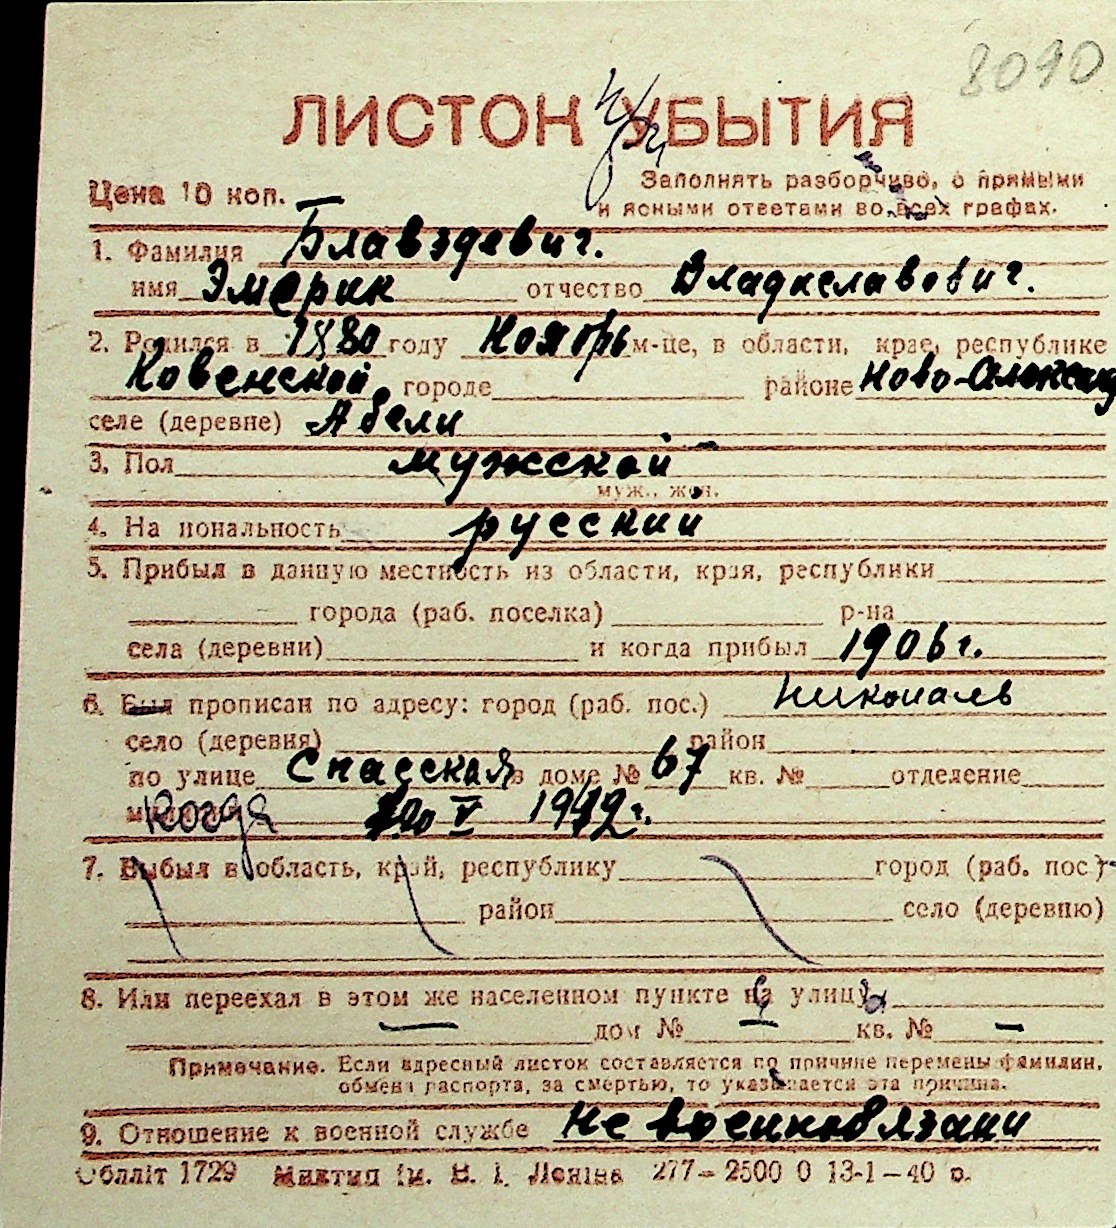 8090
ЛИСТОК УБЫТИЯ
Цена 10 коп.
Заполнять разборчиво, с прямыми
и ясными ответами во всех графах.
1. Фамилия Блавздевиг.
имя Эмерик отчество Владиславовиг.
2. Родился в 1880 году Ноябрь м-це, в области, крае, республике
Ковенской городе районе Ново-Александ
селе (деревне) Абели
3. Пол мужской
муж., жен.
4. На иональность русский
5. Прибыл в данную местность из области, края, республики
города (раб. поселка) р-на
села (деревни) и когда прибыл 1906 г.
6. Был прописан по адресу: город (раб. пос.) Николаев
село (деревня) район
по улице Спасская в доме № 67 кв. № отделение
когда V 1942 г.
7. Выбыл в область, край, республику город (раб. пос.)
район село (деревню)
8. Или переехал в этом же населенном пункте на улицу
— дом № — кв. № —
Примечание. Если адресный листок составляется по причине перемены фамилии,
обмена паспорта, за смертью, то указывается эта причина.
9. Отношение к военной службе Не военнообязани
Облліт 1729 Миктип ім. В. І. Леніна 277–2500 0 13-1–40 р.